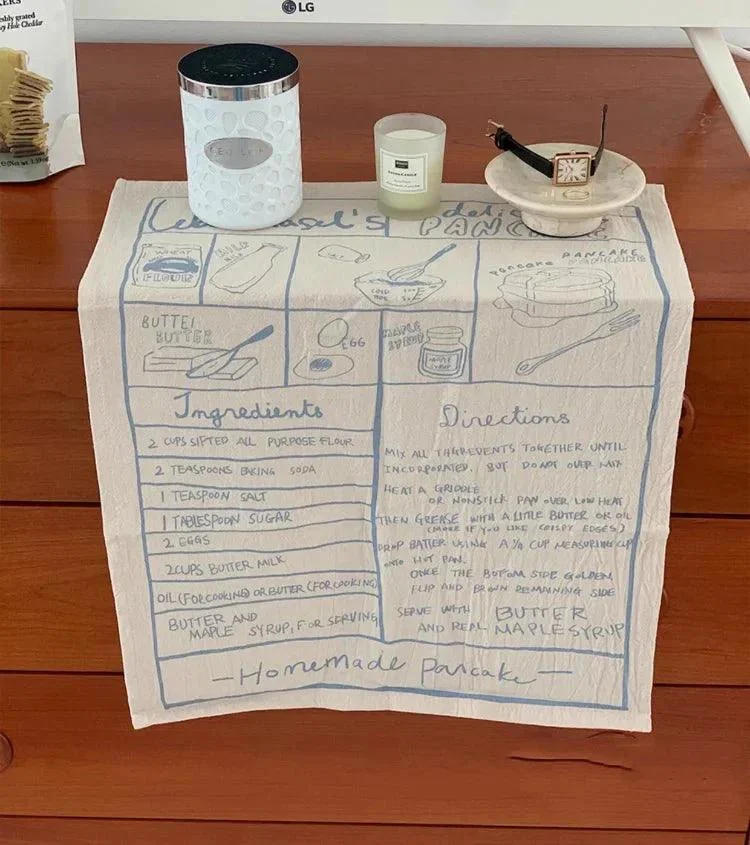 LG
Hole Cheddar
WHEAT
FLOUR
PANCAKE
PANCAKE
BUTTER
BUTTER
EGG
MAPLE
SYRUP
MAPLE
SYRUP
Ingredients
2 CUPS SIFTED ALL PURPOSE FLOUR
2 TEASPOONS BAKING SODA
1 TEASPOON SALT
1 TABLESPOON SUGAR
2 EGGS
2 CUPS BUTTER MILK
OIL (FOR COOKING) OR BUTTER (FOR COOKING)
BUTTER AND
MAPLE SYRUP, FOR SERVING
Directions
MIX ALL THGREVENTS TOGETHER UNTIL
INCORPORATED, BUT DO NOT OVER MIX
HEAT A GRIDDLE
OR NONSTICK PAN OVER LOW HEAT
THEN GREASE WITH A LITTLE BUTTER OR OIL
(MORE IF YOU LIKE CRISPY EDGES)
DROP BATTER USING A ¼ CUP MEASURING CUP
ONTO HOT PAN.
ONCE THE BOTTOM SIDE GOLDEN,
FLIP AND BROWN REMAINING SIDE
SERVE WITH BUTTER
AND REAL MAPLE SYRUP
-Homemade pancake-